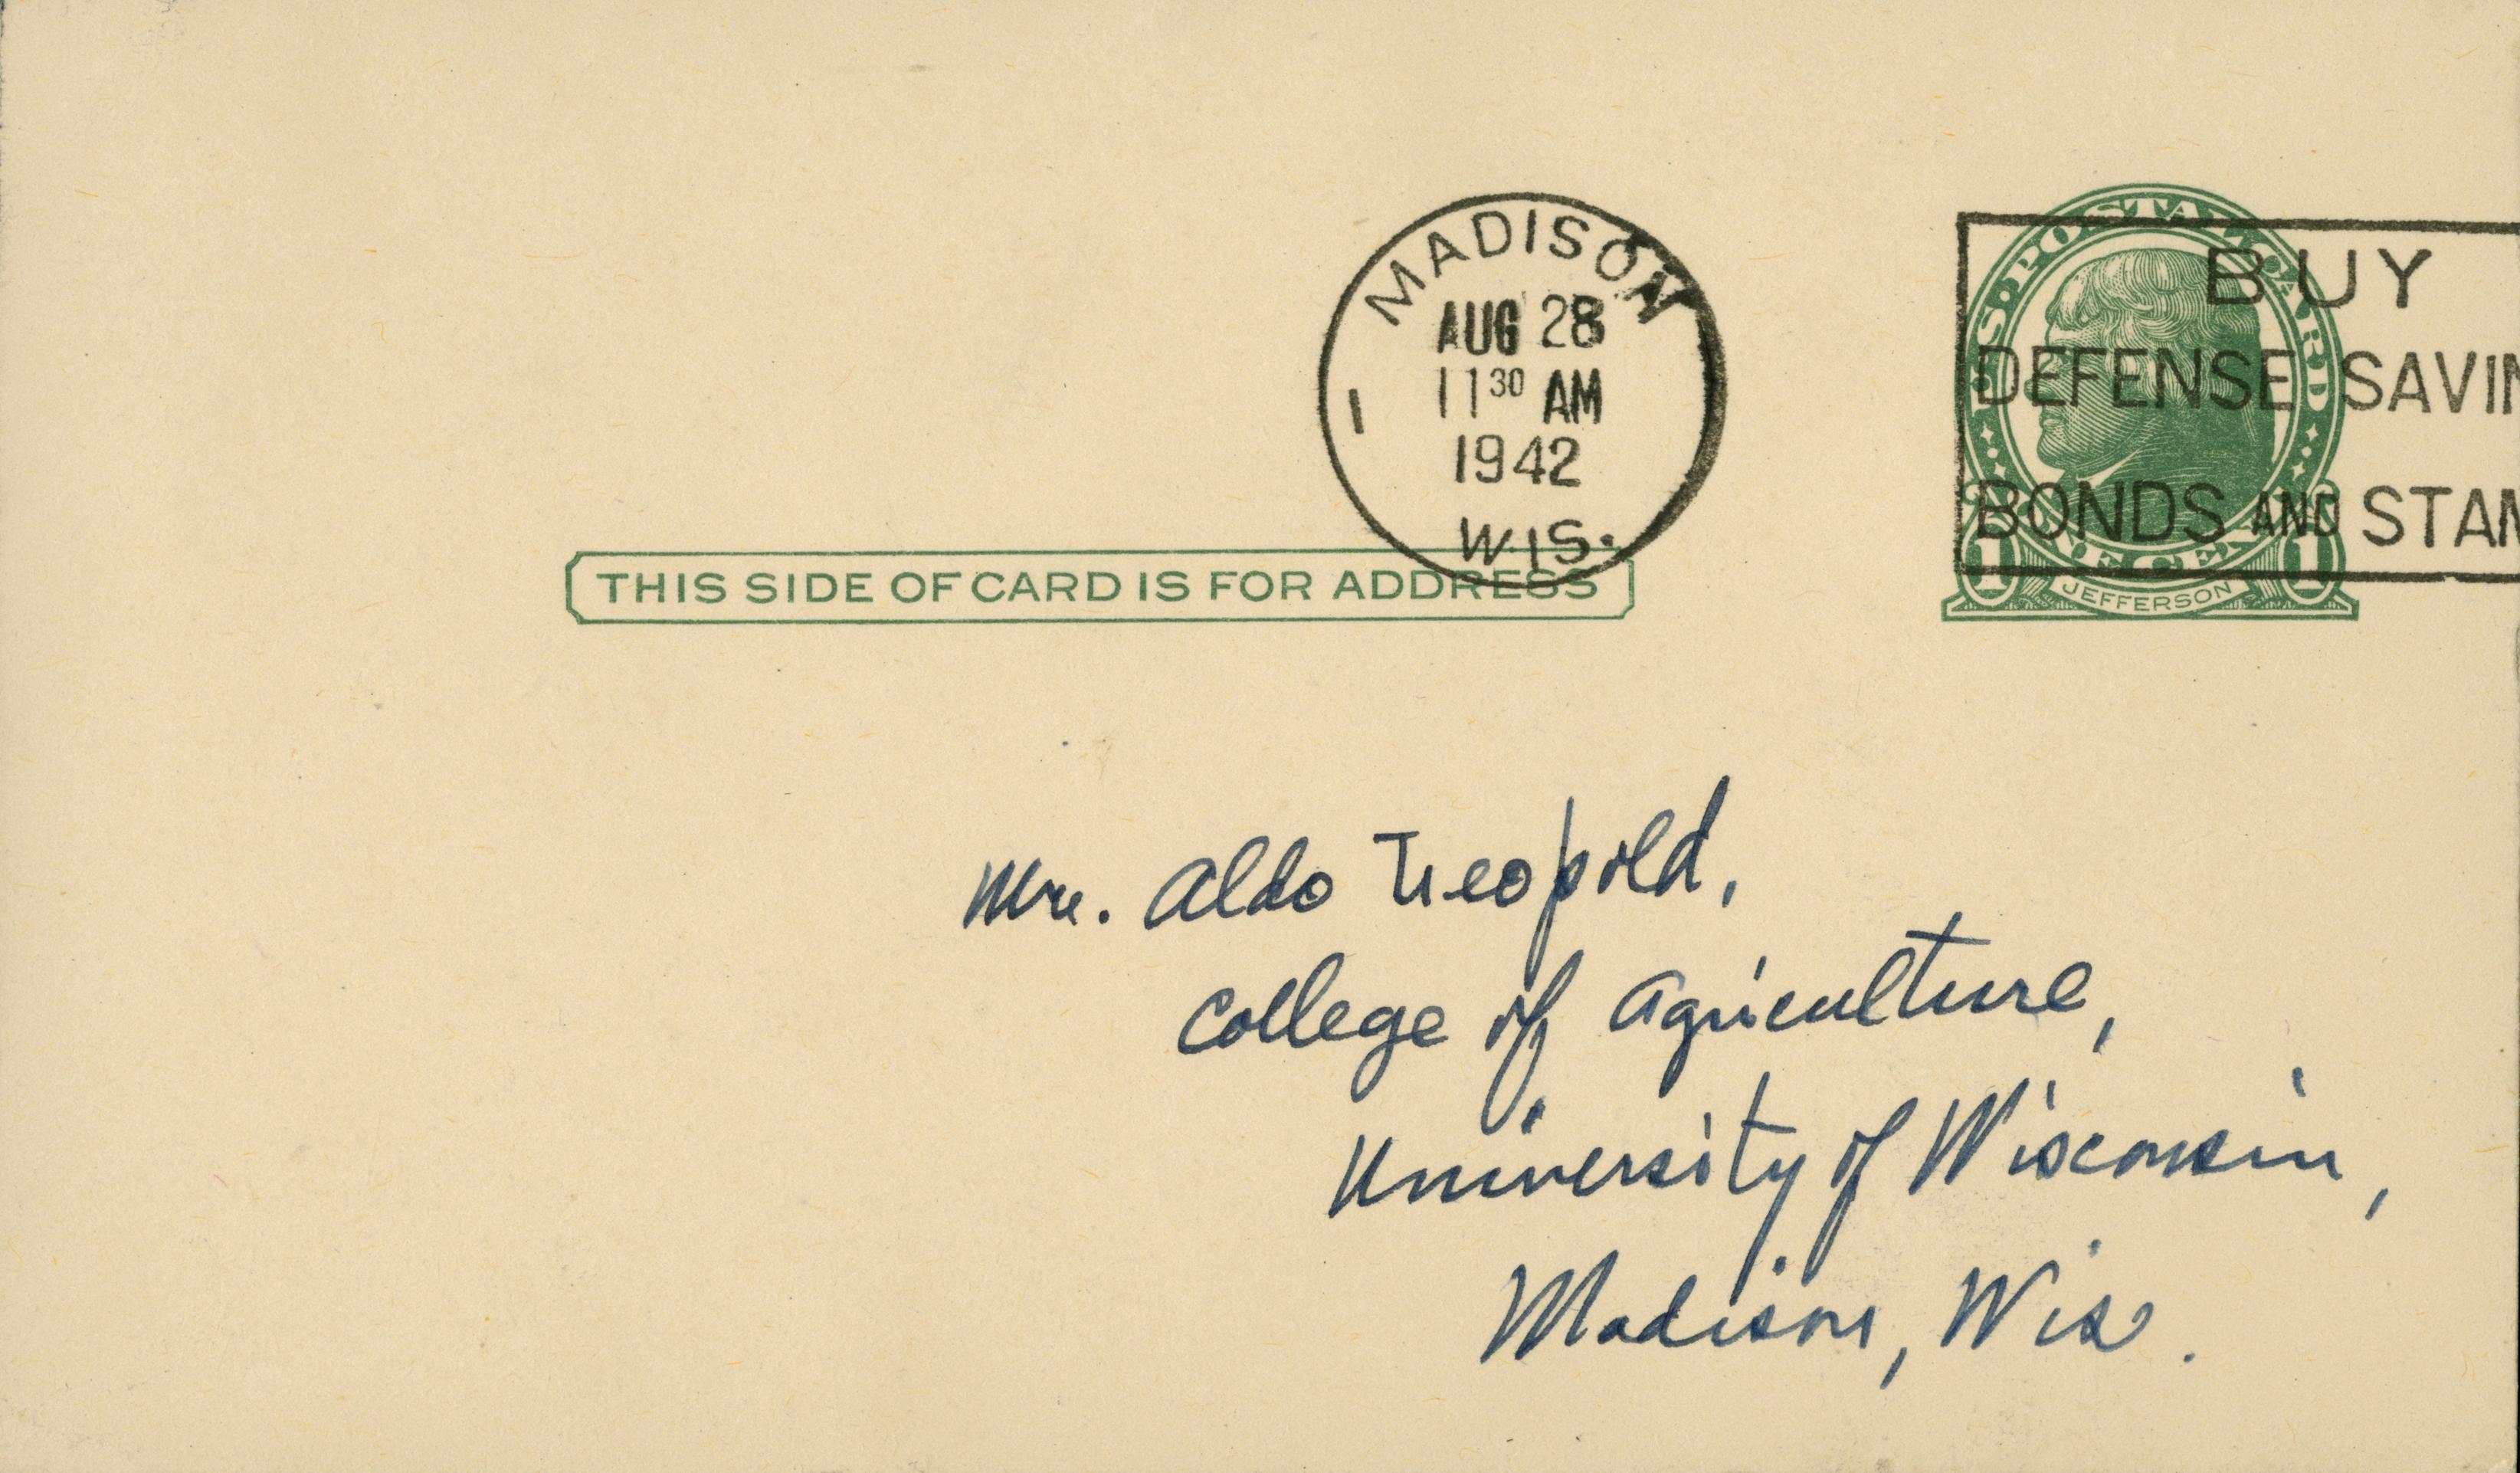 MADISON
AUG 28
11 30 AM
1942
WIS.
1
U.S. POSTAL CARD
BUY
DEFENSE SAVIN
BONDS AND STAM
ONE CENT
1 JEFFERSON 1
THIS SIDE OF CARD IS FOR ADDRESS
Mr. Aldo Leopold,
College of Agriculture,
University of Wisconsin,
Madison, Wis.